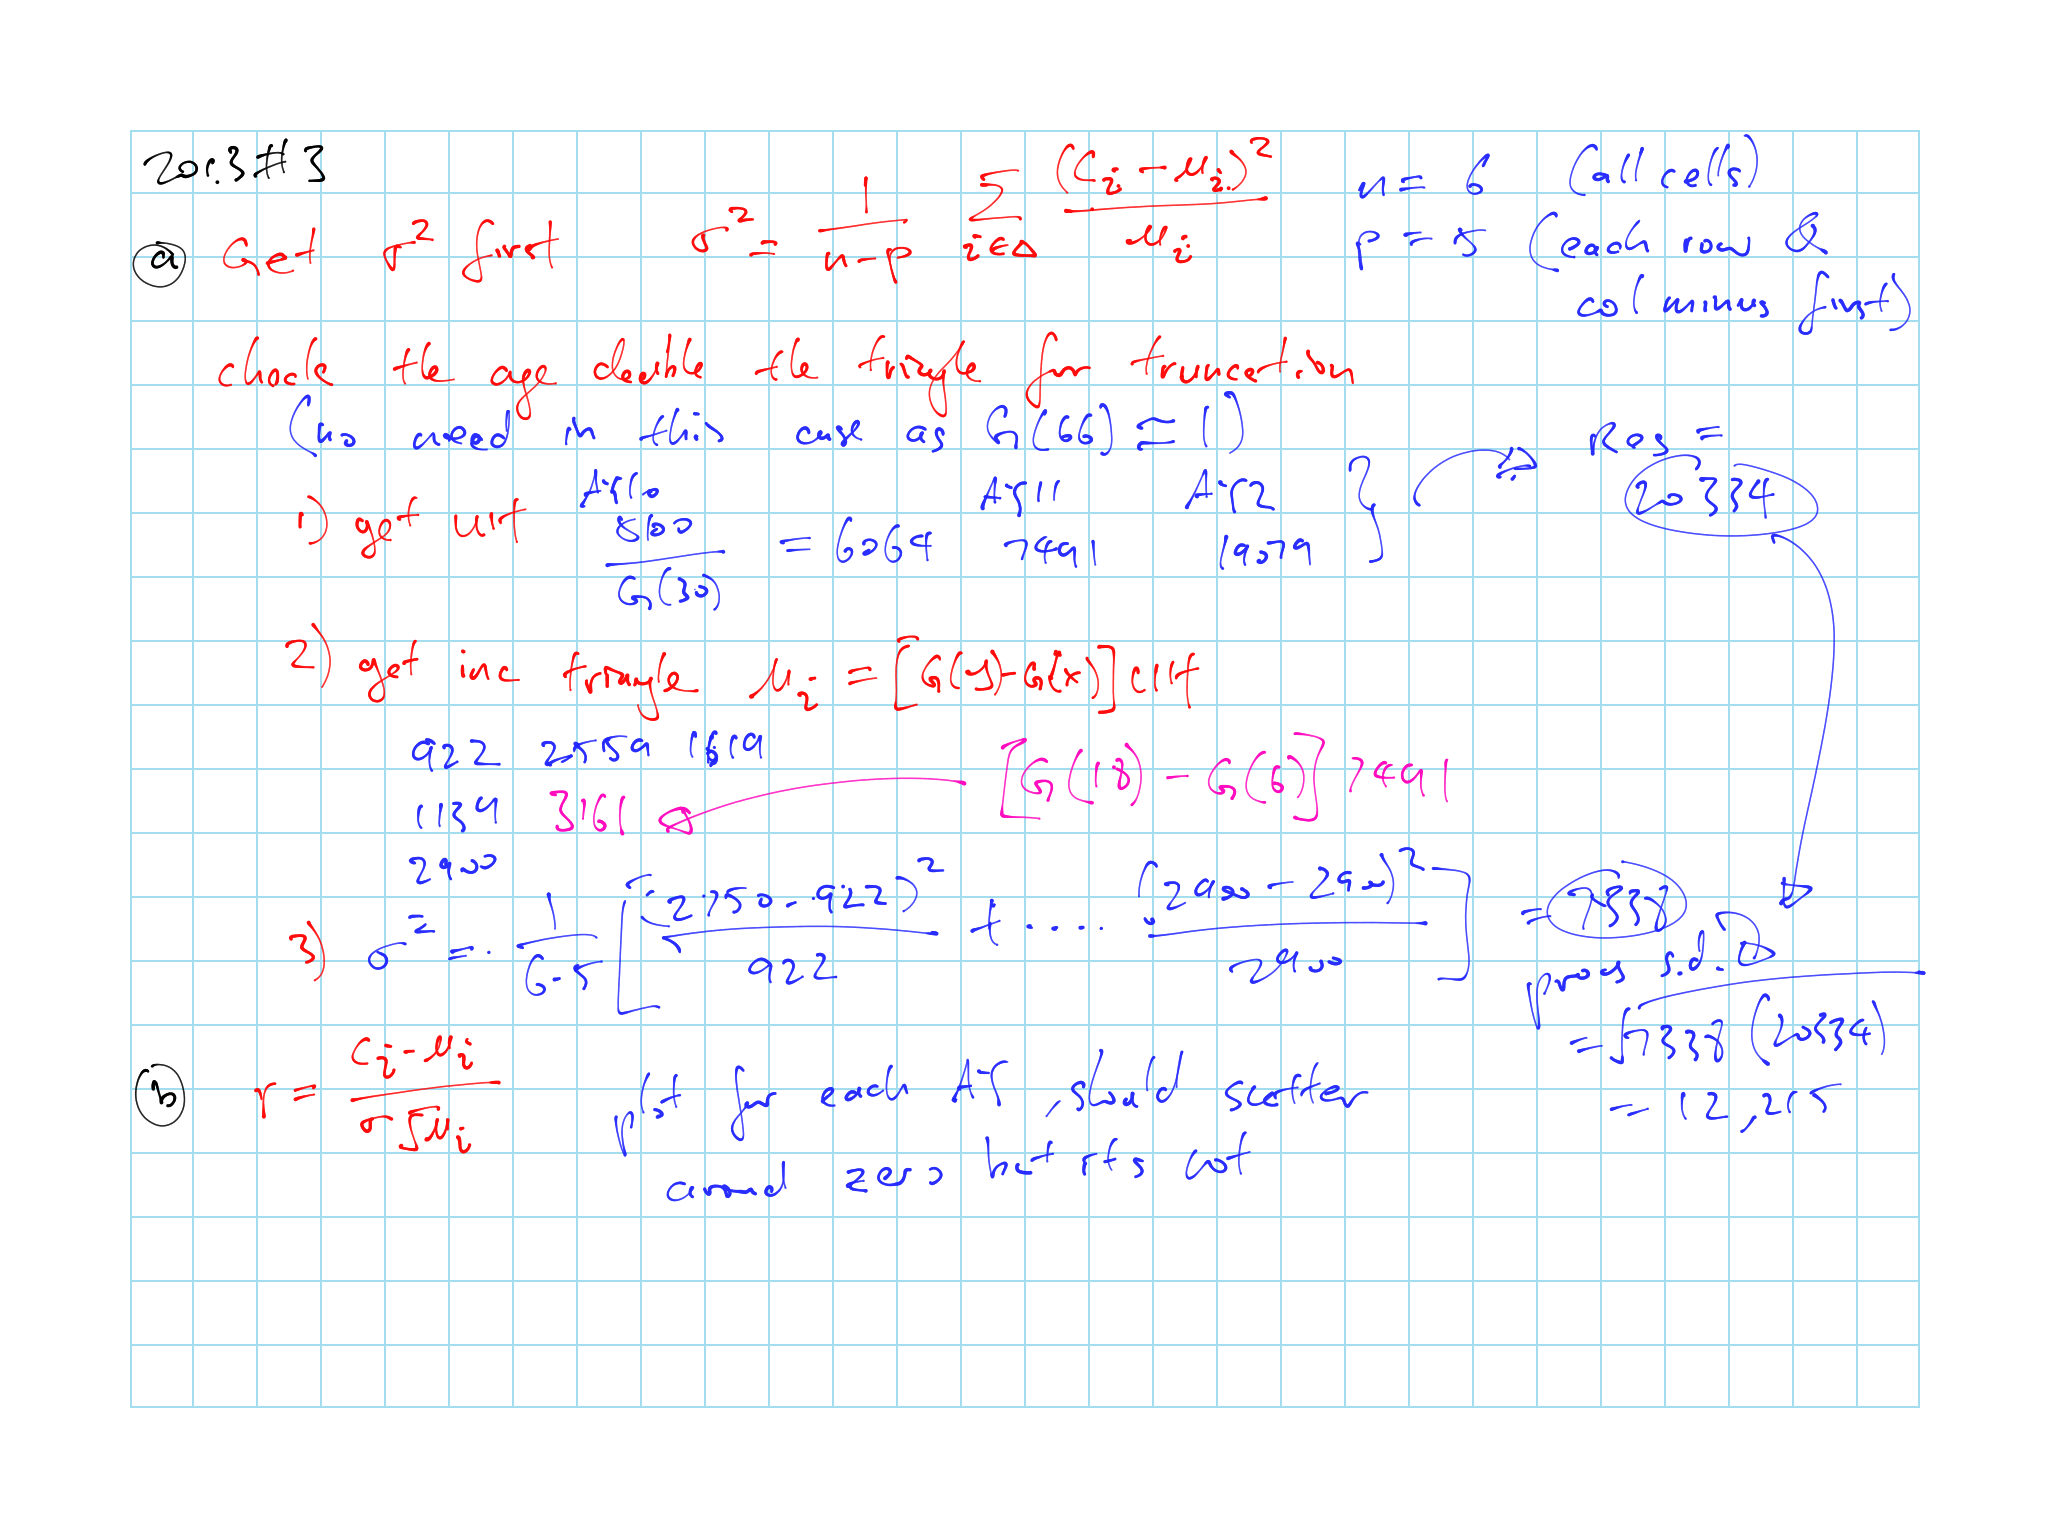 2018.3 #3
(a) Get σ² first σ² = 1/(n-p) Σ i∈Δ (Ci - μi)²/μi n = 6 (all cells)
p = 5 (each row &
col minus first)
check the age double the triangle for truncation
(no need in this case as G(66) ≈ 1)
1) get ult AY10 5100/G(30) = 6064 AY11 7491 AY12 19079 } → Res = 20334
2) get inc triangle μi = [G(y)-G(x)] Ult
922 2559 1619
1139 3161 ← [G(18) - G(6)] 7491
2900
3) σ² = 1/(6-5) [(2750-922)²/922 + .... (2900-2900)²/2900] = 7338
proc s.d.
= √7338 (20334)
= 12,215
(b) r = (Ci-μi)/(σ√μi) plot for each AY, should scatter
around zero but it's not